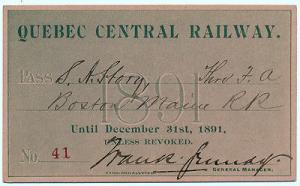 QUEBEC CENTRAL RAILWAY.
PASS S. N. Story, Third F. A
1891
Boston & Maine R R
Until December 31st, 1891,
UNLESS REVOKED.
No. 41 Frank Grundy
GENERAL MANAGER.